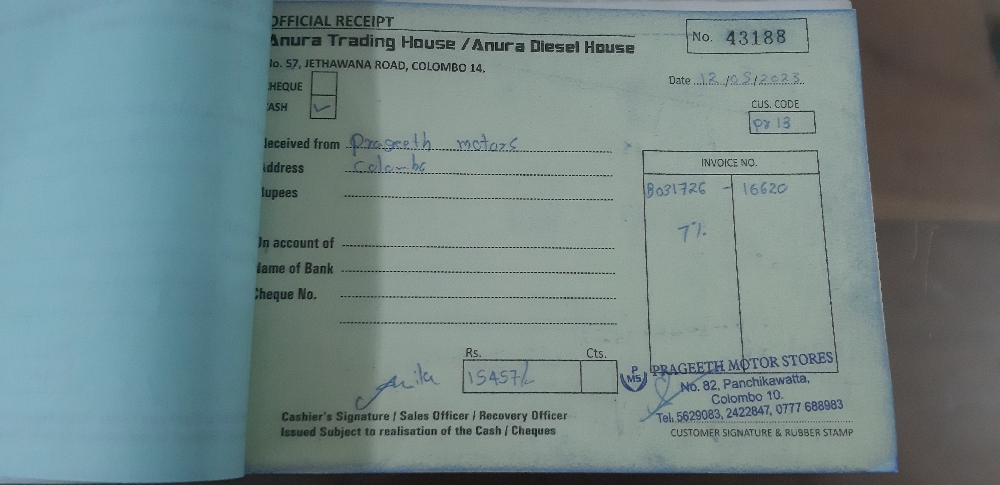 OFFICIAL RECEIPT
Anura Trading House / Anura Diesel House
No. 43188
No. 57, JETHAWANA ROAD, COLOMBO 14.
Date 12/05/2023
HEQUE
ASH ✓
CUS. CODE
pr 13
eceived from Prageeth motors
ddress Colombo
upees
INVOICE NO.
B031726 - 16620
7%
On account of
Name of Bank
Cheque No.
Rs. Cts.
15457/-
PMS PRAGEETH MOTOR STORES
No. 82, Panchikawatta,
Colombo 10.
Tel, 5629083, 2422847, 0777 688983
Cashier's Signature / Sales Officer / Recovery Officer
Issued Subject to realisation of the Cash / Cheques
CUSTOMER SIGNATURE & RUBBER STAMP